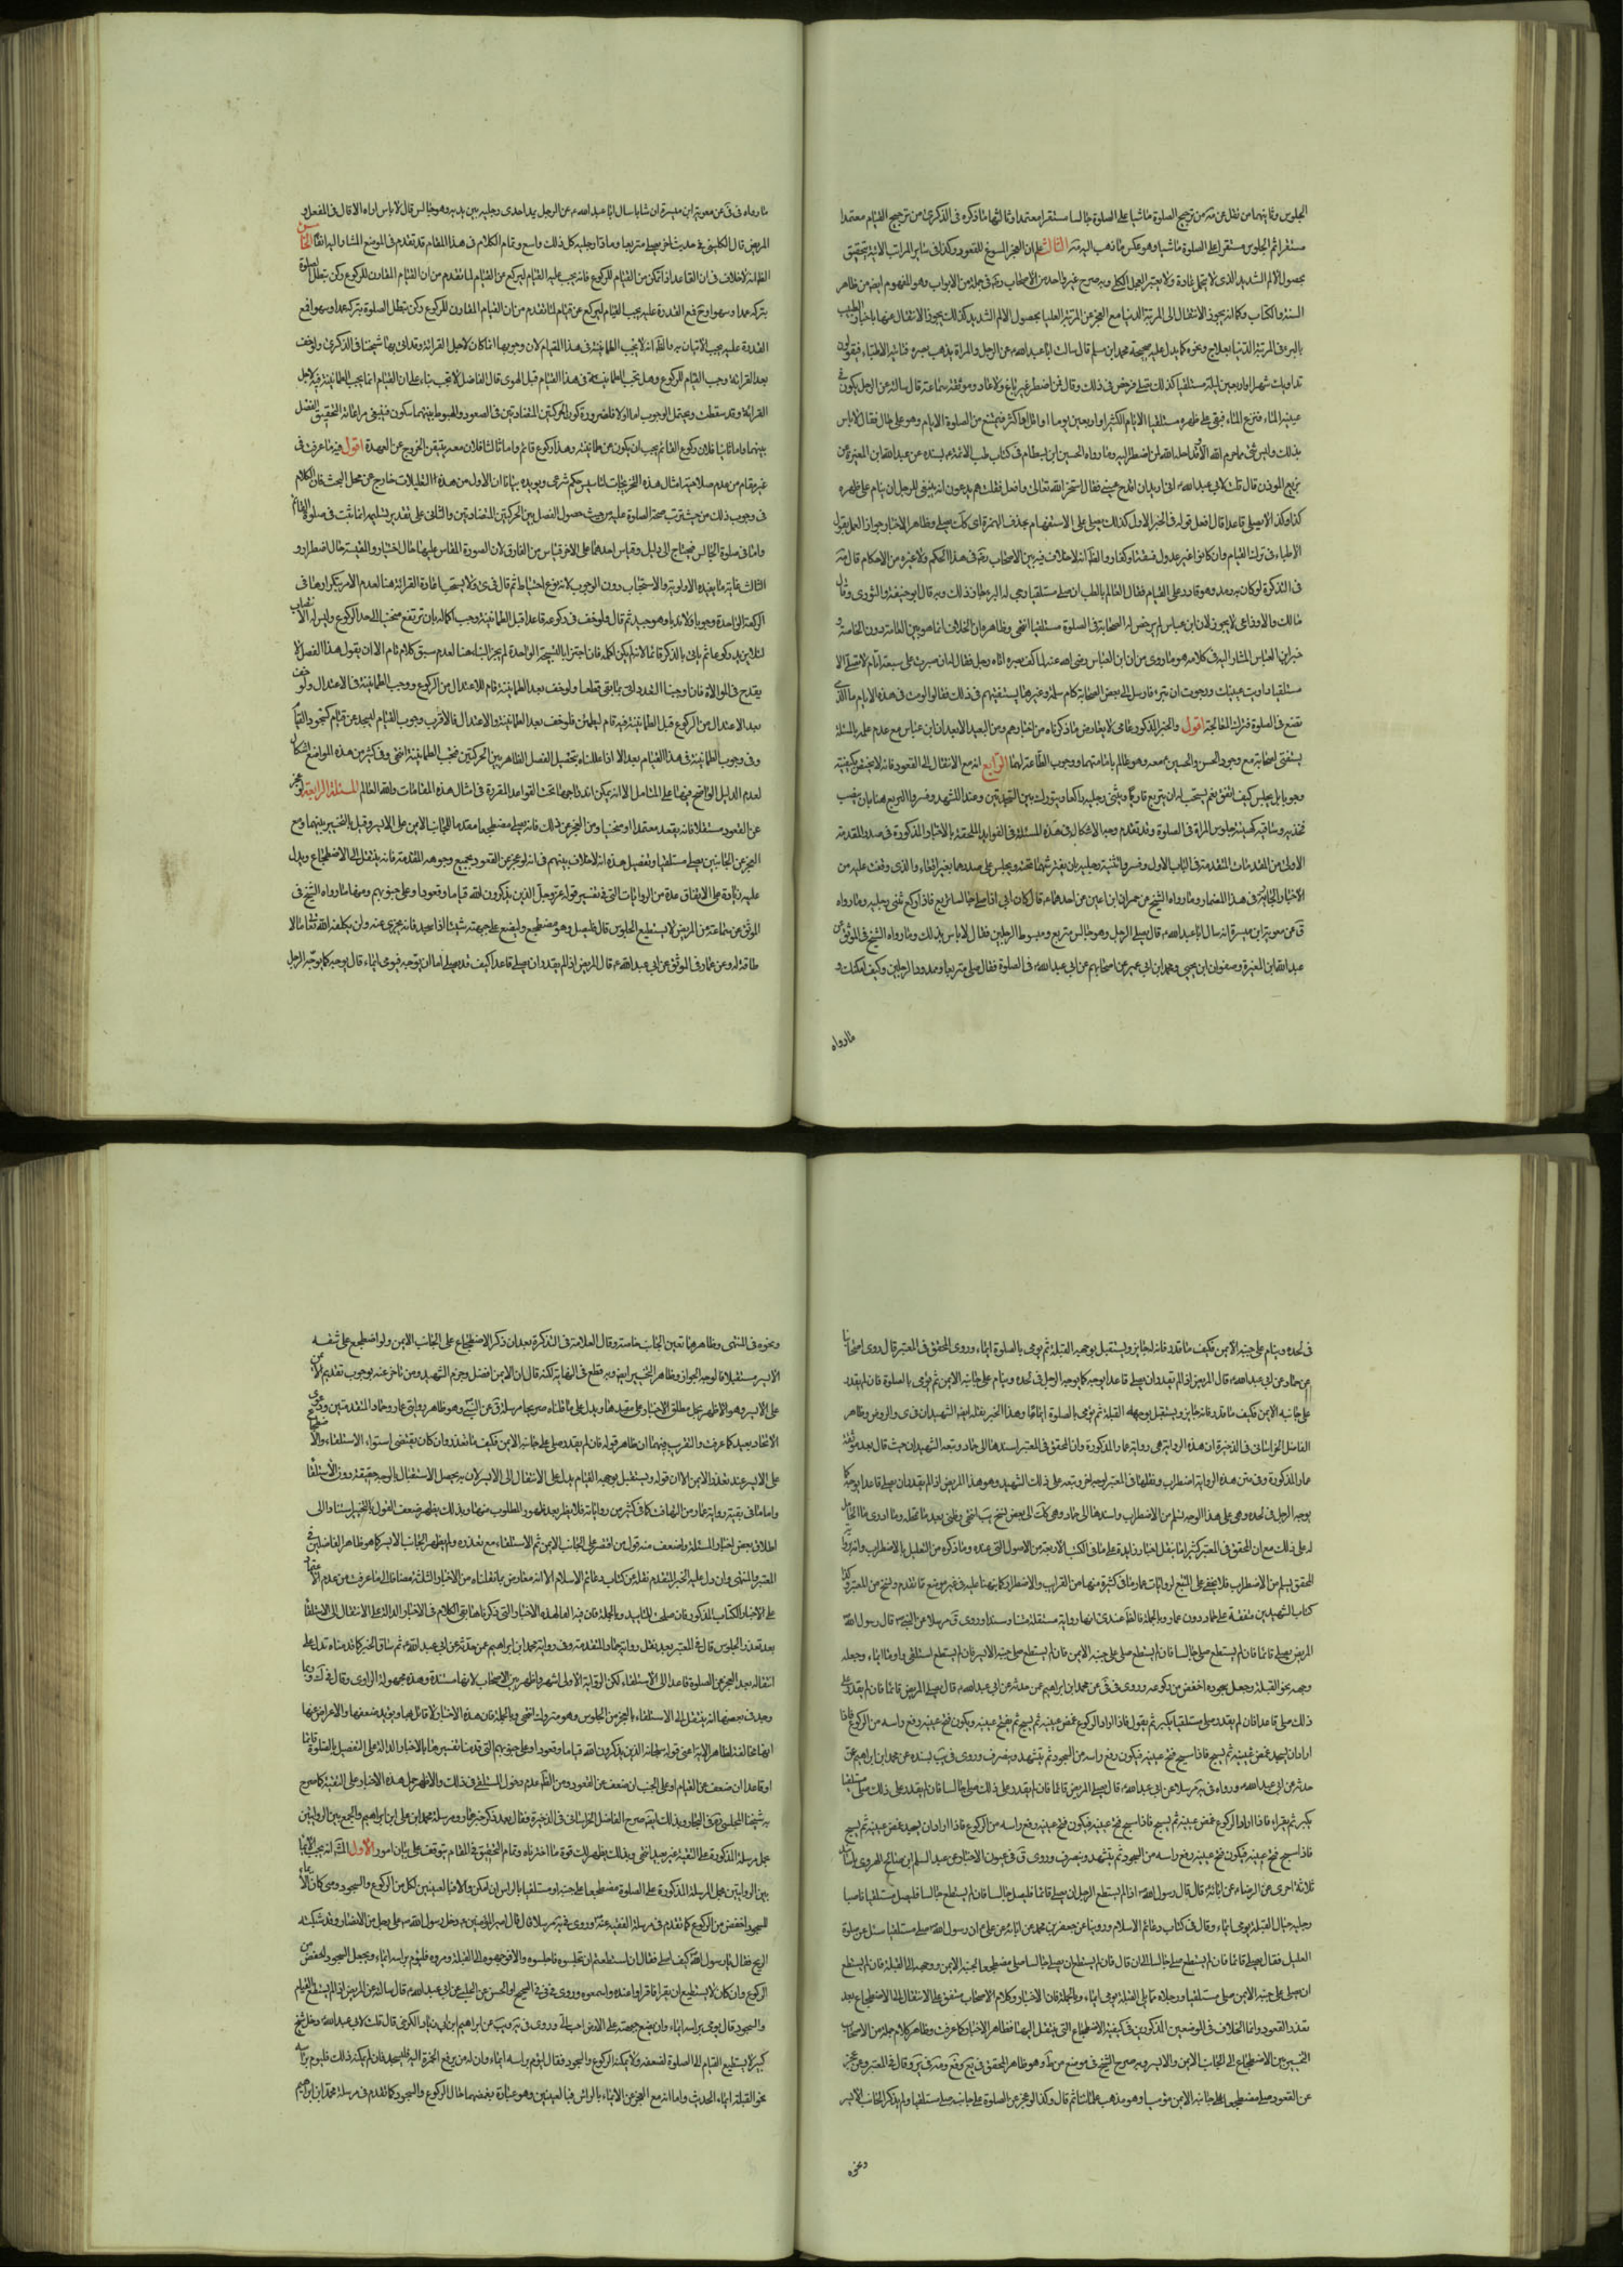 الجلوس وثانيهما من نقل عن منه من ترجيح الصلوة ماشيا على الصلوة جالسا مستقرا معتمدا وثالثها ما ذكره في الذكرى من ترجيح القيام معتمدا
مستقرا ثم الجلوس مستقرا على الصلوة ماشيا وهو عكس ما ذهب اليه الثالث على ان العجز المسوغ للقعود وكذا في ساير المراتب الاتية يتحقق
بحصول الالم الشديد الذي لا يتحمل عادة ولا يعتبر العجز الكلي وبه صرح غير واحد من الاصحاب في جملة من الابواب وهو المفهوم ايضا من ظاهر
السنة والكتاب وكما انه يجوز الانتقال الى المرتبة الدنيا مع العجز عن المرتبة العليا بحصول الالم الشديد كذلك يجوز الانتقال عنها باخبار الطبيب
بالبرء في المرتبة الدنيا بعلاج ونحوه كما يدل عليه صحيحة محمد ابن مسلم قال سالت ابا عبد الله عن الرجل والمراة يذهب بصره فياتيه الاطباء فيقولون
نداويك شهرا او اربعين ليلة مستلقيا كذلك تصلي فرخص في ذلك وقال فمن اضطر غير باغ ولا عاد وموثقة سماعة قال سالته عن الرجل يكون في
عينيه الماء فينزع الماء فيبقى على ظهره مستلقيا الايام الكثيرة او اربعين يوما او اقل او اكثر فيمتنع من الصلوة الايام وهو على حال فقال لا باس
بذلك وليس شئ مما حرم الله الا وقد احله الله لمن اضطر اليه وما رواه الحسين ابن بسطام في كتاب طب الائمة بسنده عن عبد الله ابن المغيرة عن
بزيع الموذن قال قلت لابي عبد الله اني اريد ان اقدح عيني فقال استخر الله تعالى وافعل فقلت هم يزعمون انه ينبغي للرجل ان ينام على ظهره
كذا وكذا لا يصلي قاعدا قال افعل
الاطباء في ترك القيام وان كانوا غير عدول فسقة او كفار والظ انه لا خلاف فيه بين الاصحاب في هذا الحكم ولا غيره من الاحكام قال
في التذكرة لو كان به رمد وهو قادر على القيام فقال العالم بالطب ان صلى مستلقيا رجي له البرء جاز ذلك وبه قال ابو حنيفة والثوري وقال
مالك والاوزاعي لا يجوز لان ابن عباس لم يرخص له الصحابة في الصلوة مستلقيا انتهى وظاهره ان الخلاف انما هو بين العامة دون الخاصة و
خبر ابن العباس المشار اليه في كلامه هو ما روى من ان ابن العباس رضي الله عنه لما كف بصره اتاه رجل فقال له ان صبرت على سبعة ايام لا تصلي الا
مستلقيا داويت عينيك ورجوت ان تبرء فارسل الى بعض الصحابة كام سلمة وغيرها يستفتيهم في ذلك فقالوا لو مت في هذه الايام ما الذي
تصنع في الصلوة فترك المعالجة اقول والخبر المذكور عامي لا يعارض ما ذكرناه من اخبارهم ومن البعيد الابعد ان ابن عباس مع عدم علمه بالمسئلة
يستفتي اصحابه مع وجود الحسن والحسين معه وهو عالم بامامتهما ووجوب الطاعة لهما الرابع انه مع الانتقال الى القعود فانه لا يختص بكيفية
وجوبا بل يجلس كيف اتفق نعم يستحب له ان يتربع قاريا ويثني رجليه راكعا ويتورك بين السجدتين وعند التشهد وفسروا التربع هنا بان ينصب
فخذيه وساقيه كهيئة جلوس المراة في الصلوة وقد تقدم وجه الاشكال في هذه المسئلة في الفوايد الملحقة بالاخبار المذكورة في صدد المقدمة
الاولى من المقدمات المتقدمة في الباب الاول وفسروا تثنية رجليه بان يفترشهما تحته ويجلس على صدرهما بغير اقعاء والذي وقفت عليه من
الاخبار الجارية في هذا المضمار وما رواه الشيخ عن حمران ابن اعين عن احدهما قال كان ابي اذا صلى جالسا تربع فاذا ركع ثنى رجليه وما رواه
ق عن معوية ابن ميسرة انه سال ابا عبد الله قال يصلي الرجل وهو جالس متربع ومبسوط الرجلين فقال لا باس بذلك وما رواه الشيخ في الموثق عن
عبد الله ابن المغيرة وصفوان ابن يحيى ومحمد ابن ابي عمير عن اصحابهم عن ابي عبد الله في الصلوة فقال صلى متربعا وممدود الرجلين وكيف امكنك و
ما رواه
ما رواه في ق عن معوية ابن ميسرة ان سنانا سال ابا عبد الله عن الرجل يمد احدى رجليه بين يديه وهو جالس قال لا باس ولا اراه الا قال في المعتل و
المريض قال الكليني في حديث اخر يصلي متربعا ومادا رجليه كل ذلك واسع وتمام الكلام في هذا المقام قد تقدم في الموضع المشار اليه انفا الخامس
الظ انه لا خلاف في ان القاعد اذا تمكن من القيام للركوع فانه يجب عليه القيام ليركع عن القيام لما تقدم من ان القيام المقارن للركوع ركن تبطل الصلوة
بتركه عمدا وسهوا ومع تجدد القدرة عليه يجب القيام ليركع عن قيام لما تقدم من ان القيام المقارن للركوع ركن تبطل الصلوة بتركه عمدا وسهوا فمع
القدرة عليه يجب الاتيان به والظ انه لا يجب الطمانينة في هذا القيام لان وجوبها انما كان لاجل القرائة وقد اتى بها شيخنا في الذكرى ولو خف
بعد القرائة وجب القيام للركوع وهل يجب الطمانينة في هذا القيام قبل الهوى قال الفاضل لا يجب بناء على ان القيام انما يجب الطمانينة فيه لاجل
القرائة وقد سقطت ويحتمل الوجوب اما اولا فلضرورة كون الحركتين المتضادتين في الصعود والهبوط بينهما سكون فينبغي مراعاته لتحقق الفصل
بينهما واما ثانيا فلان ركوع القائم يجب ان يكون عن طمانينة وهذا ركوع قائم واما ثالثا فلان معه يتيقن الخروج عن العهدة اقول فيه ما عرفت في
غير مقام من عدم صلاحية امثال هذه التخريجات لتاسيس حكم شرعي ويؤيده بيانا ان الاول من هذه التعليلات خارج عن محل البحث فان الكلام
في وجوب ذلك من حيث ترتب صحة الصلوة عليه من حيث حصول الفصل بين الحركتين المتضادتين والثاني على تقدير تسليمه انما يثبت في صلوة القائم
واما في صلوة الجالس فيحتاج الى دليل وقياس احدهما على الاخر قياس مع الفارق لان الصورة المقاس عليها حال اختيار والمقيسة حال اضطرار و
الثالث غاية ما يفيده الاولوية والاستحباب دون الوجوب لانه نوع احتياط ثم قال في ى ولا يستحب اعادة القرائة هنا لعدم الامر بتكرارها في
الركعة الواحدة وجوبا ولا ندبا وهو جيد ثم قال ولو خف في ركوعه قاعدا قبل الطمانينة وجب اكماله بان يرتفع منحنيا الى حد الراكع وليس له الانتصاب
لئلا يزيد ركوعا ثم ياتي بالذكر قائما لانه لم يكن اكمله فان اجتزئنا بالتسبيحة الواحدة لم يجز البناء هنا لعدم سبق كلام تام الا ان يقول هذا الفصل لا
يقدح في الموالاة فان اوجبنا التعدد اتى بما بقي قطعا ولو خف بعد الطمانينة قام للاعتدال من الركوع ووجب الطمانينة في الاعتدال ولو خف
بعد الاعتدال من الركوع قبل الطمانينة فيه قام ليطمئن فلو خف بعد الطمانينة والاعتدال فالاقرب وجوب القيام ليسجد عن قيام كسجود القائم
وفي وجوب الطمانينة في هذا القيام بعد الا اذا عللناه بتحصيل الفصل الظاهر بين الحركتين فيجب الطمانينة انتهى وفي كثير من هذه المواضع اشكال
لعدم الدليل الواضح فيها على المتامل الا انه يمكن اندراجها تحت القواعد المقررة في امثال هذه المقامات والله العالم المسئلة الرابعة لو عجز
عن القعود مستقلا فانه يقعد معتمدا او منحنيا ومع العجز عن ذلك فانه يصلي مضطجعا مقدما للجانب الايمن على الايسر وقيل بالتخيير بينهما ومع
العجز عن الجانبين يصلي مستلقيا وتفصيل هذه انه لا خلاف بينهم في انه لو عجز عن القعود بجميع وجوهه المتقدمة فانه ينتقل الى الاضطجاع ويدل
عليه زيادة على الاتفاق عدة من الروايات التي في تفسير قوله عز وجل الذين يذكرون الله قياما وقعودا وعلى جنوبهم ومنها ما رواه الشيخ في
الموثق عن سماعة عن المريض لا يستطيع الجلوس قال فليصل وهو مضطجع وليضع على جبهته شيئا اذا سجد فانه يجزي عنه ولن يكلفه الله تعالى ما لا
طاقة له وعن عمار في الموثق عن ابي عبد الله قال المريض اذا لم يقدر ان يصلي قاعدا كيف قدر صلى اما ان يوجه فيومي ايماء قال يوجه كما يوجه الرجل
في لحده وينام على جنبه الايمن فكيف ما قدر فانه له جايز ويستقبل بوجهه القبلة ثم يومي بالصلوة ايماء وروى المحقق في المعتبر قال روى اصحابنا
عن حماد عن ابي عبد الله قال المريض اذا لم يقدر ان يصلي قاعدا يوجه كما يوجه الرجل في لحده وينام على جانبه الايمن ثم يومي بالصلوة فان لم يقدر
على جانبه الايمن فكيف ما قدر فانه جايز ويستقبل بوجهه القبلة ثم يومي بالصلوة ايماء وهذا الخبر نقله ايضا الشهيدان في ى والروض وظاهر
الفاضل الخراساني في الذخيرة ان هذه الرواية هي رواية عمار المذكورة وان المحقق في المعتبر اسندها الى حماد وتبعه الشهيدان حيث قال بعد موثقة
عمار المذكورة وفي متن هذه الرواية اضطراب ونقلها في المعتبر لوجه اخر وتبعه على ذلك الشهيد وهو هذا المريض اذا لم يقدر ان يصلي قاعدا يوجه كما
يوجه الرجل في لحده وهي على هذا الوجه اسلم من الاضطراب واسندها الى حماد
له على ذلك مع ان المحقق في المعتبر كثيرا ما ينقل اخبارا زايدة على ما في الكتب الاربعة من الاصول التي عنده وما ذكره من التعليل بالاضطراب وانه
المحقق
كتاب الشهيدين متفقة على حماد دون عمار وبالجملة فالظ عندي انها رواية مستقلة متنا وسندا وروى ق مرسلا عن النبي قال قال رسول الله
المريض يصلي قائما فان لم يستطع صلى جالسا فان لم يستطع صلى على جنبه الايمن فان لم يستطع صلى على جنبه الايسر فان لم يستطع استلقى واومأ ايماء وجعله
وجهه نحو القبلة وجعل سجوده اخفض من ركوعه وروى في ق عن محمد ابن ابراهيم عن من حدثه عن ابي عبد الله قال يصلي المريض قائما فان لم يقدر على
ذلك صلى قاعدا فان لم يقدر صلى مستلقيا يكبر ثم يقرأ فاذا اراد الركوع غمض عينيه ثم يسبح ثم يفتح عينيه ويكون فتح عينيه رفع راسه من الركوع فاذا
اراد ان يسجد غمض عينيه ثم يسبح فاذا سبح فتح عينيه فيكون رفع راسه من السجود ثم يتشهد وينصرف وروى في يب بسنده عن محمد ابن ابراهيم عن من
حدثه عن ابي عبد الله ورواه في يه مرسلا عن ابي عبد الله قال يصلي المريض قائما فان لم يقدر على ذلك صلى جالسا فان لم يقدر على ذلك صلى مستلقيا
يكبر ثم يقراء فاذا اراد الركوع غمض عينيه ثم يسبح فاذا سبح فتح عينيه فيكون فتح عينيه رفع راسه من الركوع فاذا اراد ان يسجد غمض عينيه ثم يسبح
فاذا سبح فتح عينيه فيكون فتح عينيه رفع راسه من السجود ثم يتشهد وينصرف وروى ق في عيون الاخبار عن عبد السلم ابن صالح الهروي باسانيد
ثلاثة اخرى عن الرضا عن ابائه قال قال رسول الله اذا لم يستطع الرجل ان يصلي قائما فليصل جالسا فان لم يستطع جالسا فليصل مستلقيا ناصبا
رجليه حيال القبلة يومي ايماء وقال في كتاب دعائم الاسلام وروينا عن جعفر بن محمد عن ابائه عن علي ان رسول الله سئل عن صلوة
العليل فقال يصلي قائما فان لم يستطع صلى جالسا الى ان قال فان لم يستطع ان يصلي جالسا صلى مضطجعا لجنبه الايمن ووجهه الى القبلة فان لم يستطع
ان يصلي على جنبه الايمن صلى مستلقيا ورجلاه مما يلي القبلة يومي ايماء وبالجملة فان الاخبار وكلام الاصحاب متفق على الانتقال الى الاضطجاع بعد
تعذر القعود وانما الخلاف في الموضعين المذكورين في كيفية الاضطجاع التي ينتقل اليها فظاهر الاخبار كما عرفت وظاهر كلام جملة من الاصحاب
التخيير بين الاضطجاع الى الجانب الايمن والايسر وبه صرح الشيخ في موضع من ط وهو ظاهر المحقق في يع وفع ومنه في ير وقال في المعتبر ومن عجز
عن القعود صلى مضطجعا على جانبه الايمن موميا وهو مذهب علمائنا ثم قال وكذا لو عجز عن الصلوة على جانبه صلى مستلقيا ولم يذكر الجانب الايسر
ونحوه
ونحوه في المنتهى وظاهرهما تعين الجانب خاصة وقال العلامة في التذكرة بعد ان ذكر الاضطجاع على الجانب الايمن ولو اضطجع على شقه
الايسر مستقبلا فالوجه الجواز وظاهره التخيير ايضا وبه قطع في النهاية لكنه قال ان الايمن افضل وجزم الشهيد ومن تاخر عنه بوجوب تقديم الايمن
على الايسر وهو الاظهر
الاتحاد بعيد كما عرفت والتقريب فيهما ان ظاهر قوله فان لم يقدر صلى على جانبه الايمن فكيف ما قدر وان كان يقتضي استواء الاستلقاء والاضطجاع
على الايسر عند تعذر الايمن الا ان قوله ويستقبل بوجهه القبلة يدل على الانتقال الى الايسر لان به يحصل الاستقبال بالوجه حقيقة دون الاستلقاء
واما ما في بقية رواية عمار من التهافت كما في كثير من رواياته فلا يضر بعد ظهور المطلوب منها وبذلك يظهر ضعف القول بالتخيير استنادا الى
اطلاق بعض اخبار المسئلة واضعف منه قول من اقتصر على الجانب الايمن ثم الاستلقاء مع تعذره ولم يظهر الجانب الايسر كما هو ظاهر الفاضلين في
المعتبر والمنتهى وان دل عليه الخبر المتقدم نقله عن كتاب دعائم الاسلام الا انه معارض بما نقلناه من الاخبار الثلثة مضافا الى ما عرفت من عدم
بعد تعذر الجلوس قال في المعتبر بعد نقل رواية حماد المتقدمة وفي رواية محمد ابن ابراهيم عن من حدثه عن ابي عبد الله ثم ساق الخبر كما قدمناه تدل على
انتقاله بعد العجز عن الصلوة قاعدا الى الاستلقاء لكن الرواية الاولى اشهر واظهر بين الاصحاب لانها مسندة وهذه مجهولة الراوي وقال في ك
وجد في بعضها انه ينتقل الى الاستلقاء بالعجز عن الجلوس وهو متروك انتهى وبالجملة فان هذه الاخبار لا قائل بها ويؤيد ضعفها والاعراض عنها
ايضا مخالفتها لظاهر الاية اعني قوله سبحانه الذين يذكرون الله قياما وقعودا وعلى جنوبهم التي قدمنا تفسيرها بالاخبار الدالة على التفصيل بالصلوة قائما
او قاعدا ان ضعف عن القيام او على الجنب ان ضعف عن القعود ومن الظ عدم دخول المستلقي في ذلك والاظهر حمل هذه الاخبار على التقية كما صرح
به شيخنا المجلسي في البحار وبذلك ايضا صرح الفاضل الخراساني في الذخيرة فقال بعد ذكر خبر عمار ومرسلة محمد ابن ابراهيم والجمع بين الروايتين
بحمل مرسلة المذكورة على التقية غير بعيد انتهى وبذلك يظهر لك قوة ما اخترناه وتمام التحقيق في المقام يتوقف على بيان امور الاول
بين الروايتين بحمل المرسلة المذكورة على الصلوة مضطجعا على جنبه او مستلقيا بالراس ان امكن والا فبالعينين لكل من الركوع والسجود ومتى كان الايماء
للسجود اخفض من الركوع كما تقدم في مرسلة الفقيه وروى في يه مرسلا قال قال امير المؤمنين دخل رسول الله على رجل من الانصار وقد شبكته
الريح فقال يا رسول الله كيف اصلي فقال ان استطعتم ان تجلسوه فاجلسوه والا فوجهوه الى القبلة ومروه فليوم براسه ايماء ويجعل السجود اخفض من
الركوع وان كان لا يستطيع ان يقرا فاقراوا عنده واسمعوه وروى في ق في الصحيح او الحسن عن الحلبي عن ابي عبد الله قال سالته عن المريض اذا لم يستطع القيام
والسجود قال يومي براسه ايماء وان يضع جبهته على الارض احب الي وروى في يه ويب عن ابراهيم ابن ابي زياد الكرخي قال قلت لابي عبد الله رجل شيخ
كبير لا يستطيع القيام الى الصلوة لضعفه ولا يمكنه الركوع والسجود فقال ليوم براسه ايماء وان له من يرفع الخمرة اليه فليسجد فان لم يمكنه ذلك فليوم براسه
نحو القبلة ايماء الحديث واما انه مع العجز عن الايماء بالراس فبالعينين وهو عبارة تغميضهما حال الركوع والسجود كما تقدم في مرسلة محمد ابن ابراهيم